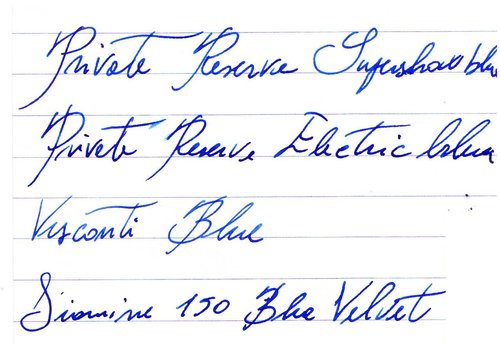 Private Reserve Supershow blue
Private Reserve Electric blue
Visconti Blue
Diamine 150 Blue Velvet